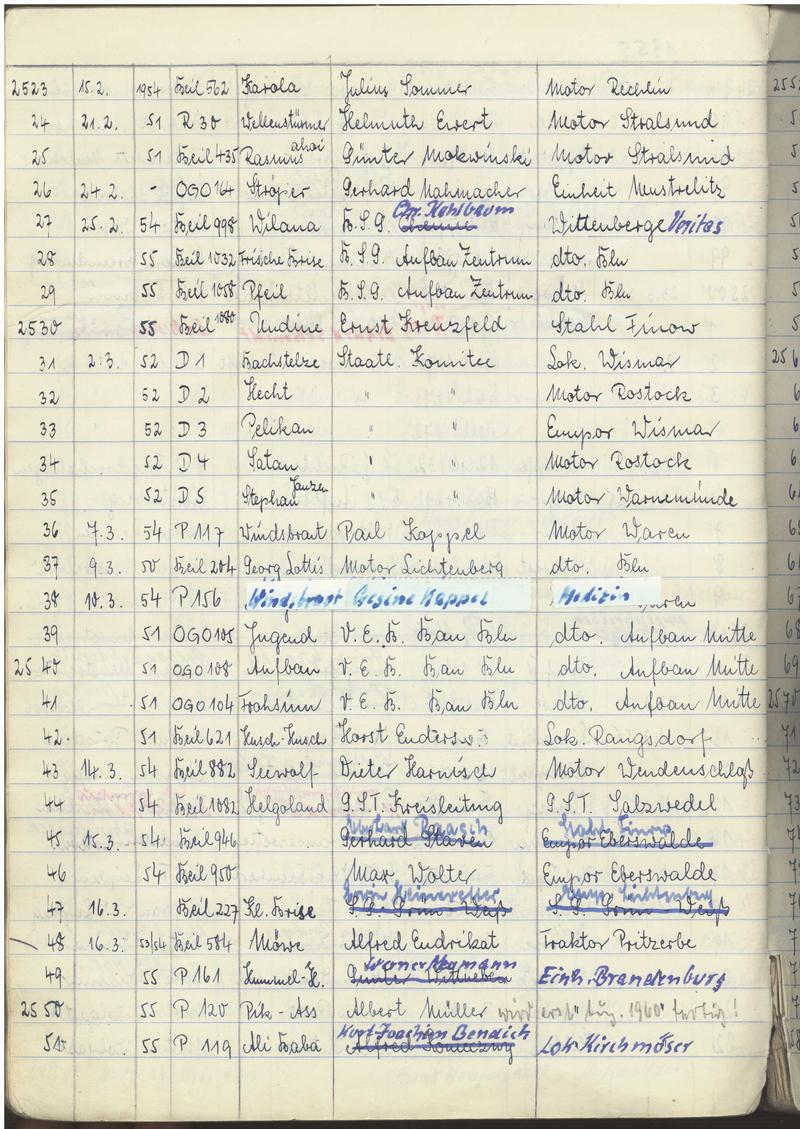 2523 15.2. 1954 Beil 562 Karola Julius Sommer Motor Rechlin
24 21.2. 51 R 30 Wellenstürmer Helmuth Ewert Motor Stralsund
25 51 Beil 435 Rasmus ahoi Günter Mokwinski Motor Stralsund
26 24.2. - OGO 164 Ströper Gerhard Nahmacher Einheit Neustrelitz
27 25.2. 54 Beil 998 Wilana B.S.G. Chr. Kohlbaum Wittenberge Veritas
28 55 Beil 1032 Frische Brise B.S.G. Aufbau Zentrum dto. Bln
29 55 Beil 1058 Pfeil B.S.G. Aufbau Zentrum dto. Bln
2530 55 Beil 1080 Undine Ernst Kreuzfeld Stahl Finow
31 2.3. 52 D 1 Bachstelze Staatl. Komitee Lok. Wismar
32 52 D 2 Hecht " " Motor Rostock
33 52 D 3 Pelikan " " Empor Wismar
34 52 D 4 Satan " " Motor Rostock
35 52 D 5 Stephan Janzen " " Motor Warnemünde
36 7.3. 54 P 117 Windsbraut Paul Kappel Motor Waren
37 9.3. 50 Beil 204 Georg Lottis Motor Lichtenberg dto. Bln
38 10.3. 54 P 156 Windsbraut Gesine Kappel Medizin
39 51 OGO 105 Jugend V.E.B. Bau Bln dto. Aufbau Mitte
2540 51 OGO 108 Aufbau V.E.B. Bau Bln dto. Aufbau Mitte
41 51 OGO 104 Frohsinn V.E.B. Bau Bln dto. Aufbau Mitte
42. 51 Beil 621 Husch-Husch Horst Enders Lok. Rangsdorf
43 14.3. 54 Beil 882 Seewolf Dieter Harnisch Motor Wendenschloß
44 54 Beil 1082 Helgoland G.S.T. Kreisleitung G.S.T. Salzwedel
45 15.3. 54 Beil 946 Gerhard Staven Stahl Finow Empor Eberswalde
46 54 Beil 950 Max Wolter Empor Eberswalde
47 16.3. Beil 227 Kl. Brise S.G. Grün Weiß Lichtenberg S.G. Grün Weiß
48 16.3. 53/54 Beil 584 Möwe Alfred Endrikat Traktor Pritzerbe
49 55 P 161 Hummel-H. Werner Neumann Einh. Brandenburg
2550 55 P 120 Pik-Ass Albert Müller wird erst Aug. 1960 fertig!
51 55 P 119 Ali Baba Kurt-Joachim Bendich Lok Kirchmöser